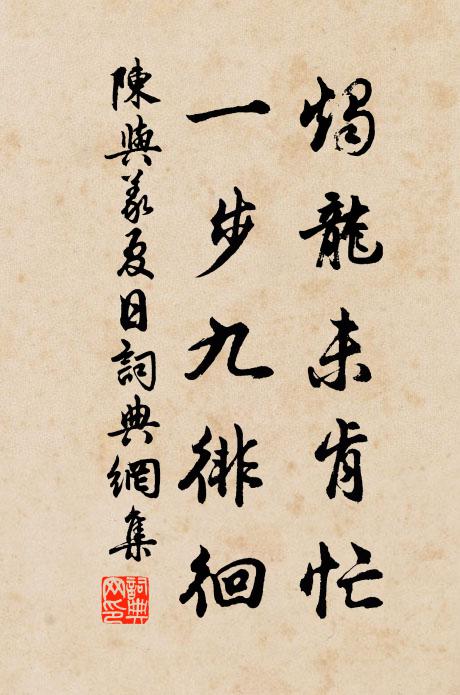 燭龍未肯忙
一步九徘徊
陳與義夏日詞典網集
詞典網印